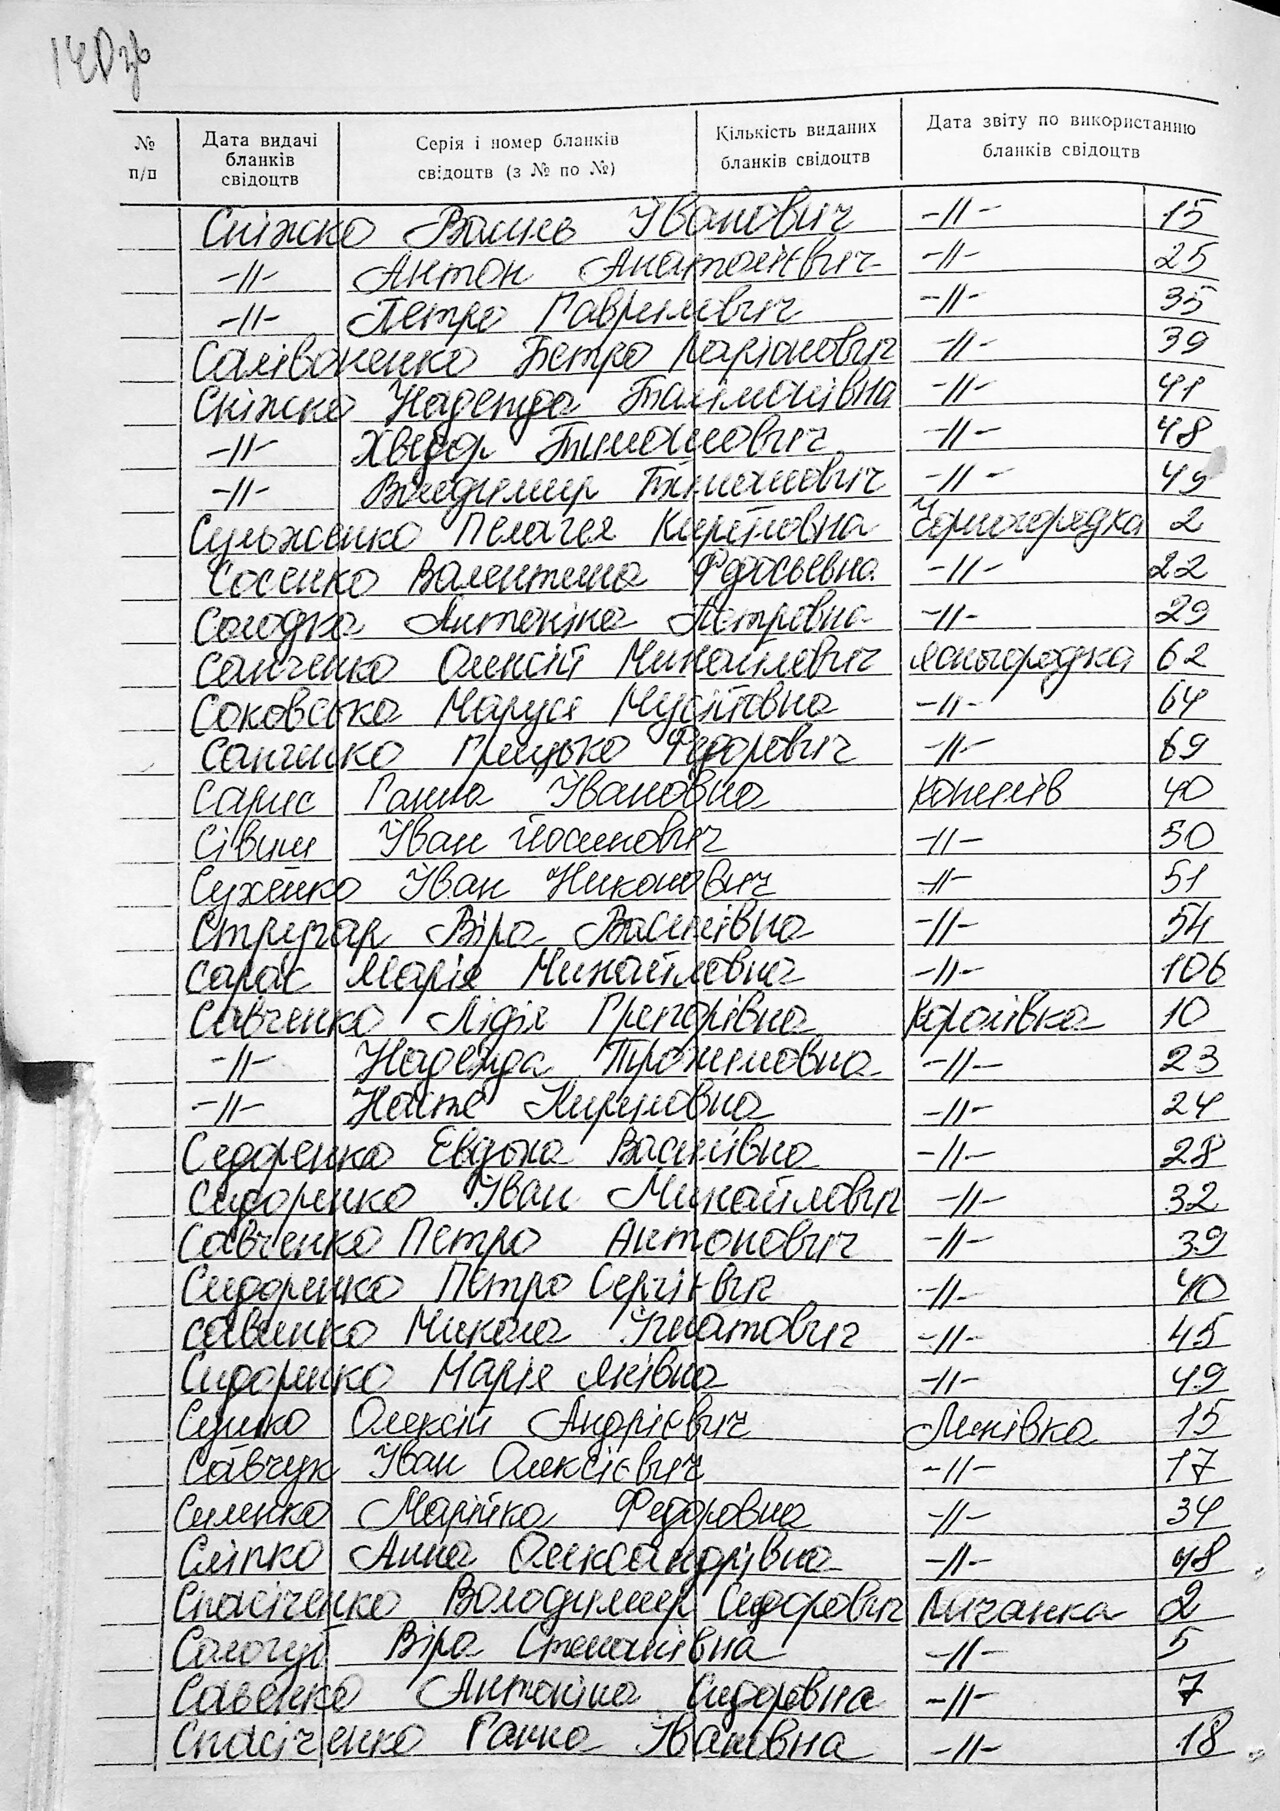 140 зв
№ п/п Дата видачі бланків свідоцтв Серія і номер бланків свідоцтв (з № по №) Кількість виданих бланків свідоцтв Дата звіту по використанню бланків свідоцтв
Сніжко Василь Іванович -//- 15
-//- Антон Анатолієвич -//- 25
-//- Петро Гаврилович -//- 35
Салівоненко Петро Ларіонович -//- 39
Сніжко Надежда Палімонівна -//- 41
-//- Хведор Тимошович -//- 48
-//- Володимир Тимошович -//- 49
Сульженко Пелагея Кирilовна Чорногородка 2
Сосенко Валентина Федосьевна -//- 22
Солодка Антоніна Петровна -//- 29
Санченко Олексій Михайлович Ясногородка 62
Соковська Маруся Мусійовна -//- 64
Санченко Грицько Федорович -//- 69
Сарис Ганна Івановна Копилів 40
Сівиш Іван Йосипович -//- 50
Сухенко Іван Никонович -//- 51
Стругар Віра Василівна -//- 54
Сарас Марія Михайловна -//- 106
Савченко Лідія Григорівна Королівка 10
-//- Надежда Трохимовна -//- 23
-//- Настя Кириловна -//- 24
Сидоренко Евдоха Василівна -//- 28
Сидоренко Іван Михайлович -//- 32
Савченко Петро Антонович -//- 39
Сидоренко Петро Сергієвич -//- 40
Савенко Микола Ігнатович -//- 45
Сидоренко Марія Яківна -//- 49
Сушко Олексій Андрієвич Липівка 15
Савчук Іван Олексієвич -//- 17
Силенко Марійка Федоровна -//- 34
Сліпко Анна Олександрівна -//- 48
Спасіченко Володимир Сидорович Личанка 2
Сологуб Віра Степанівна -//- 5
Савенко Антоніна Сидоровна -//- 7
Спасіченко Ганна Івановна -//- 18